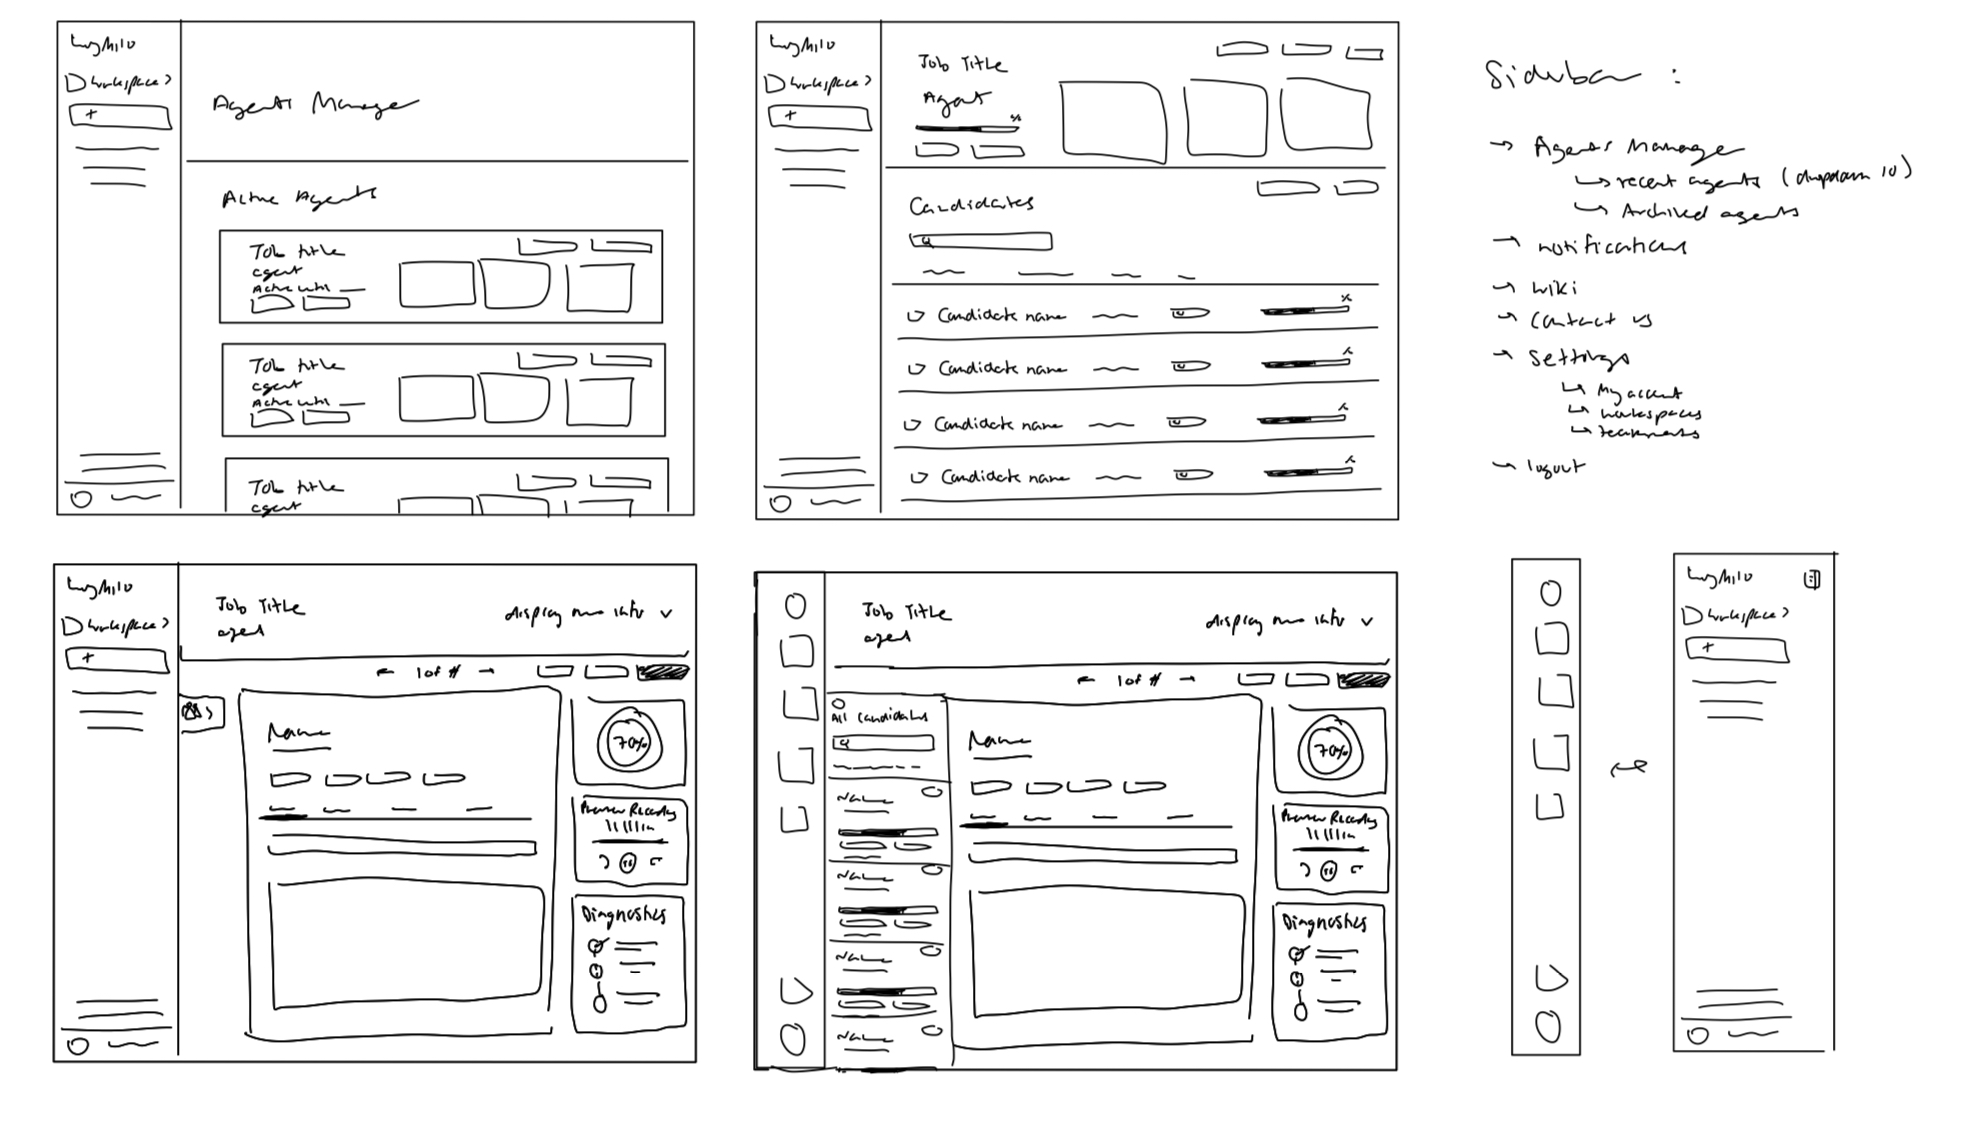 HeyMilo
Workspace >
+
Agents Manager
Active Agents
Job title
agent
Active until
Job title
agent
Active until
Job title
agent
HeyMilo
Workspace >
+
Job Title
Agent
Candidates
Candidate name
Candidate name
Candidate name
Candidate name
Sidebar :
→ Agents Manager
↳ recent agents (dropdown 10)
↳ Archived agents
→ notifications
→ wiki
→ Contact us
→ Settings
↳ My account
↳ workspaces
↳ teammates
→ logout
HeyMilo
Workspace >
+
Job Title
agent
display more info
← 1 of # →
Name
70%
Recording
Diagnostics
Job Title
agent
display more info
← 1 of # →
All candidates
Name
Name
Name
Name
Name
70%
Recording
Diagnostics
HeyMilo
Workspace >
+